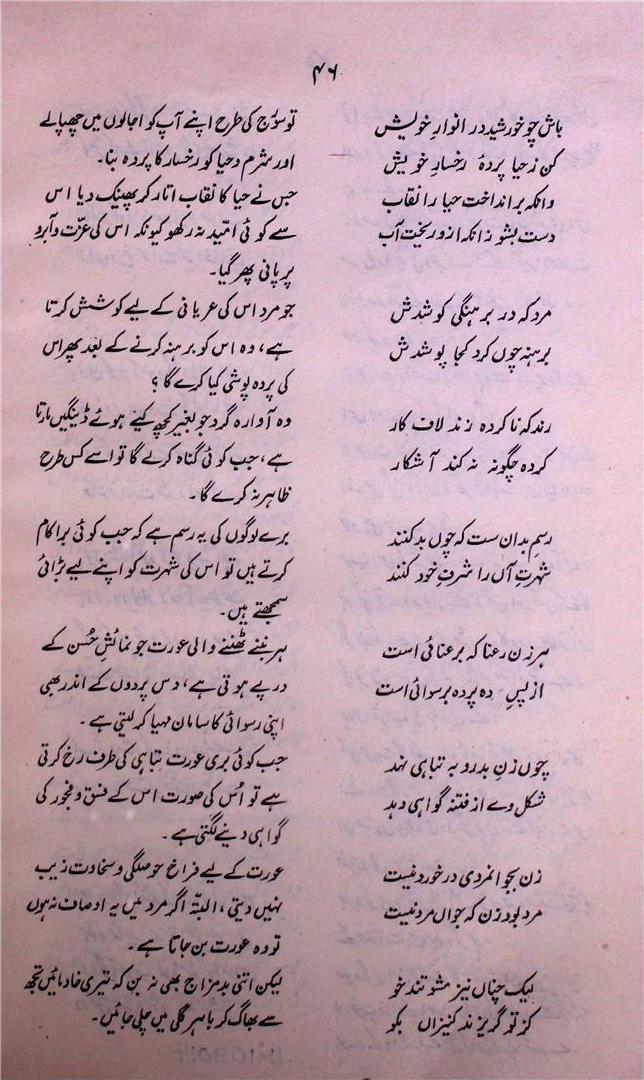 ۴۶
باش چو خورشید در انوارِ خویش
کن ز حیا پردهٔ رخسارِ خویش
وانکہ برانداخت حیا را نقاب
دست بشو زانکہ ازو ریخت آب
مرد کہ در برہنگی کوشدش
برہنہ چوں کرد کجا پوشدش
رند کہ ناکردہ زند لاف کار
کردہ چگونہ نہ کند آشکار
رسمِ بدان ست کہ چوں بد کنند
شہرتِ آں را شرفِ خود کنند
ہر زن رعنا کہ برعنائی است
از پسِ دہ پردہ برسوائی است
چوں زنِ بد رو بہ تباہی نہد
شکل وے از فتنہ گواہی دہد
زن بجوانمردی درخورد نیست
مرد بود زن کہ جواں مرد نیست
لیک چناں نیز مشو تند خو
کز تو گریزند کنیزاں بکو
تو سورج کی طرح اپنے آپ کو اجالوں میں چھپالے
اور شرم و حیا کو رخسار کا پردہ بنا۔
جس نے حیا کا نقاب اتار کر پھینک دیا اس
سے کوئی امّید نہ رکھو کیونکہ اس کی عزّت و آبرو
پر پانی پھر گیا۔
جو مرد اس کی عریانی کے لیے کوشش کرتا
ہے، وہ اس کو برہنہ کرنے کے بعد پھر اس
کی پردہ پوشی کیا کرے گا؟
وہ آوارہ گرد جو بغیر کچھ کیے ہوئے ڈینگیں مارتا
ہے، جب کوئی گناہ کرلے گا تو اسے کس طرح
ظاہر نہ کرے گا۔
برے لوگوں کی یہ رسم ہے کہ جب کوئی برا کام
کرتے ہیں تو اس کی شہرت کو اپنے لیے بڑائی
سمجھتے ہیں۔
ہر بننے ٹھننے والی عورت جو نمائشِ حُسن کے
درپے ہوتی ہے، دس پردوں کے اندر بھی
اپنی رسوائی کا سامان مہیا کر لیتی ہے۔
جب کوئی بری عورت تباہی کی طرف رخ کرتی
ہے تو اس کی صورت اس کے فسق و فجور کی
گواہی دینے لگتی ہے۔
عورت کے لیے فراخ حوصلگی و سخاوت زیب
نہیں دیتی، البتّہ اگر مرد میں یہ اوصاف نہ ہوں
تو وہ عورت بن جاتا ہے۔
لیکن اتنی بدمزاج بھی نہ بن کہ تیری خادمائیں تجھ
سے بھاگ کر باہر گلی میں چلی جائیں۔